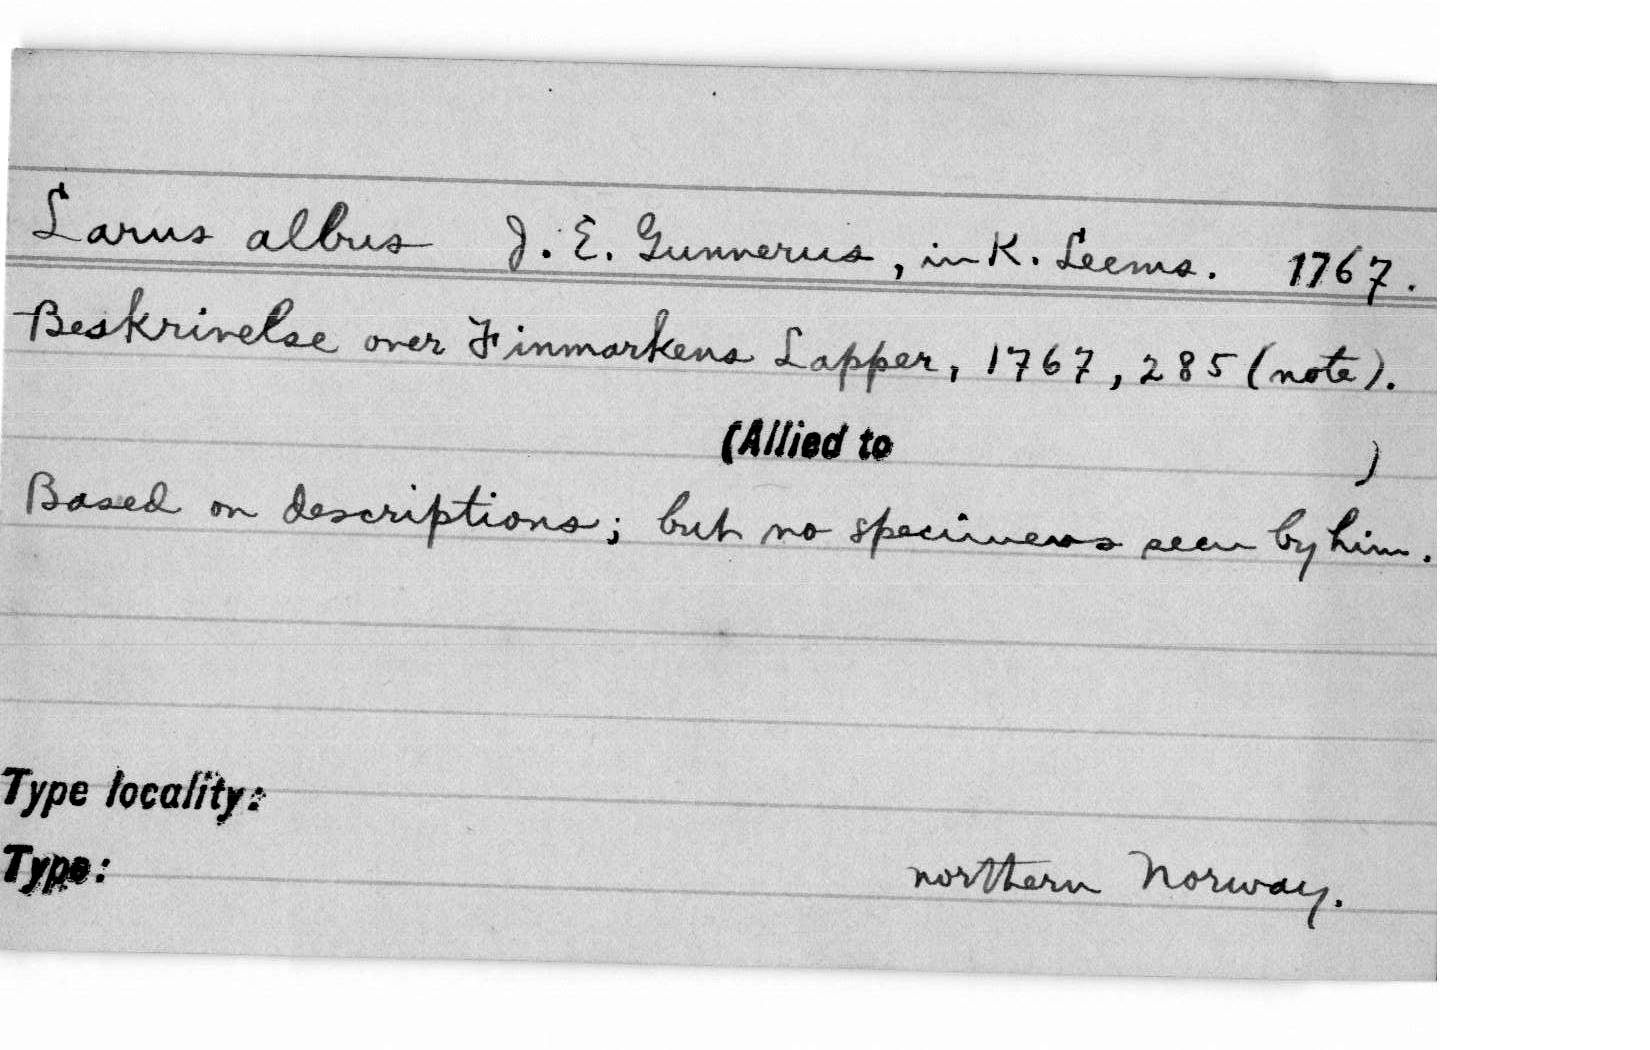 Larus albus J. E. Gunnerus, in K. Leems. 1767.
Beskrivelse over Finmarkens Lapper, 1767, 285 (note).
(Allied to )
Based on descriptions; but no specimens seen by him.
Type locality:
Type: northern Norway.